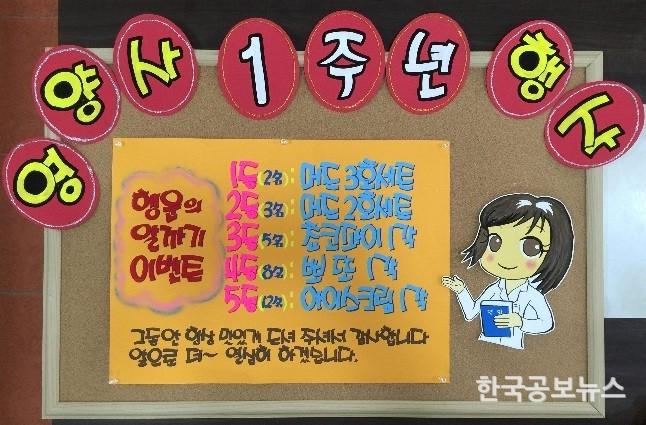 영양소 1주년 행사
행운의
알까기
이벤트
1등(2명): 머드 3호세트
2등(3명): 머드 2호세트
3등(5명): 초코파이 각
4등(8명): 빠 또 각
5등(12명): 아이스크림 각
그동안 항상 맛있게 드셔 주셔서 감사합니다
앞으로 더~ 열심히 하겠습니다.
한국공보뉴스